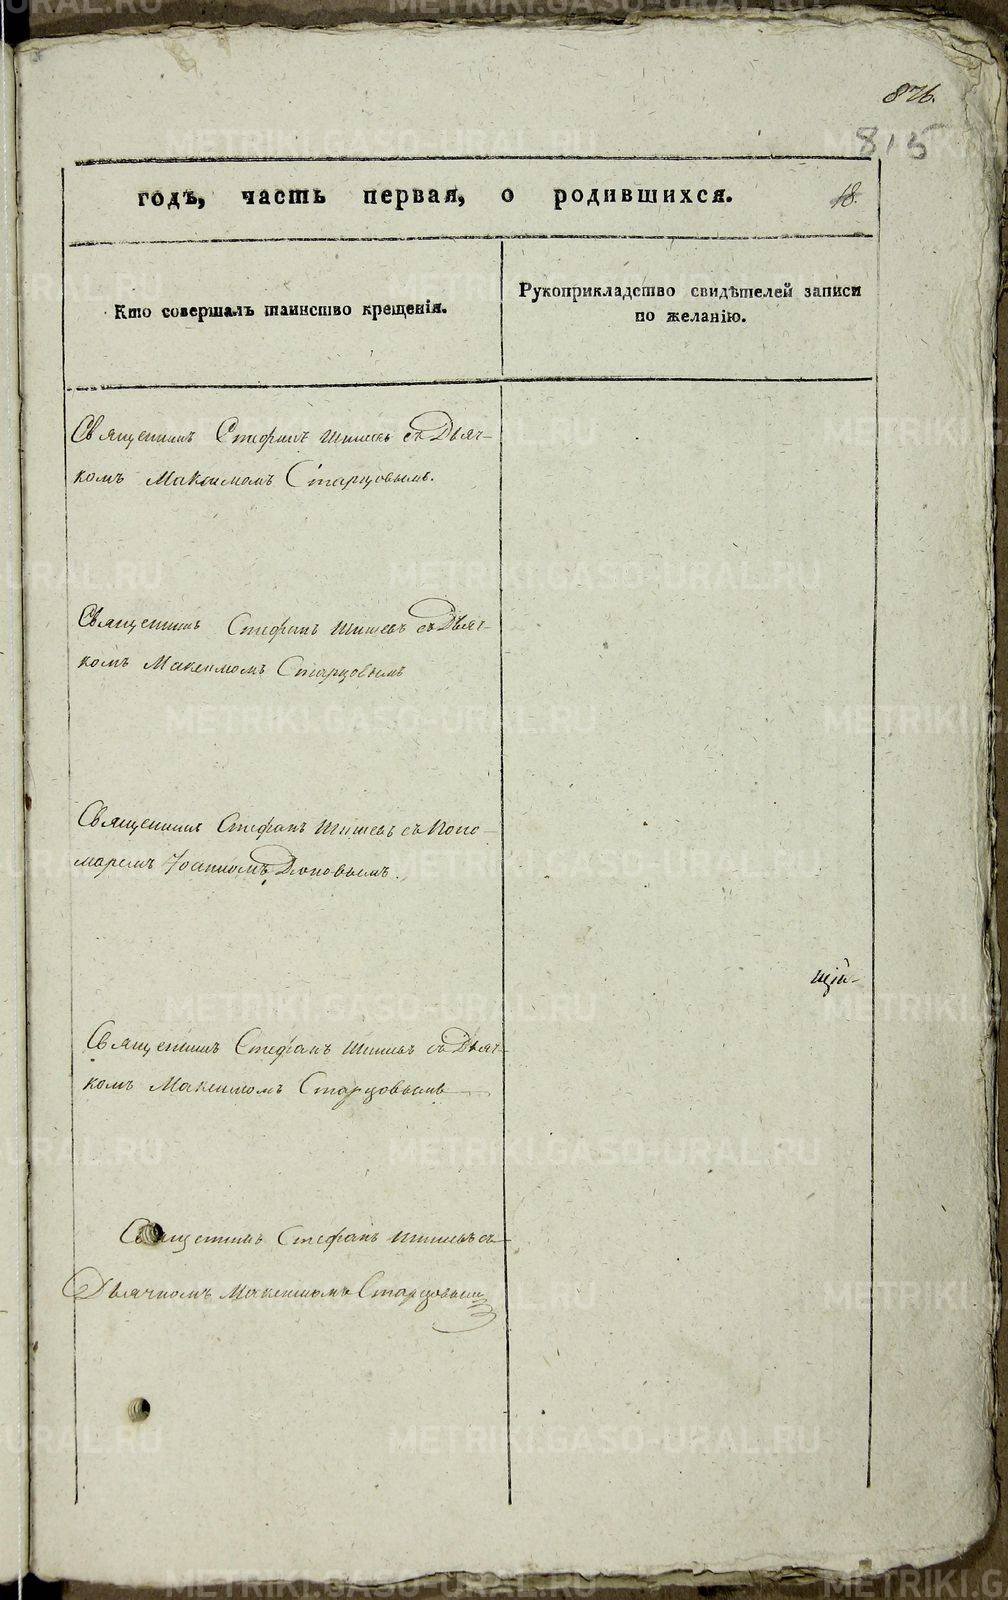 876.
815
годъ, часть первая, о родившихся. 18.
Кто совершалъ таинство крещенія.
Рукоприкладство свидѣтелей записи
по желанію.
Священникъ Стефанъ Шишевъ съ Дьяч-
комъ Максимомъ Старцовымъ.
Священникъ Стефанъ Шишевъ съ Дьяч-
комъ Максимомъ Старцовымъ
Священникъ Стефанъ Шишевъ съ Поно-
маремъ Іоанномъ
щій-
Священникъ Стефанъ Шишевъ съ Дьяч-
комъ Максимомъ Старцовымъ
Священникъ Стефанъ Шишевъ съ
Дьячкомъ Максимомъ Старцовымъ
METRIKI.GASO-URAL.RU